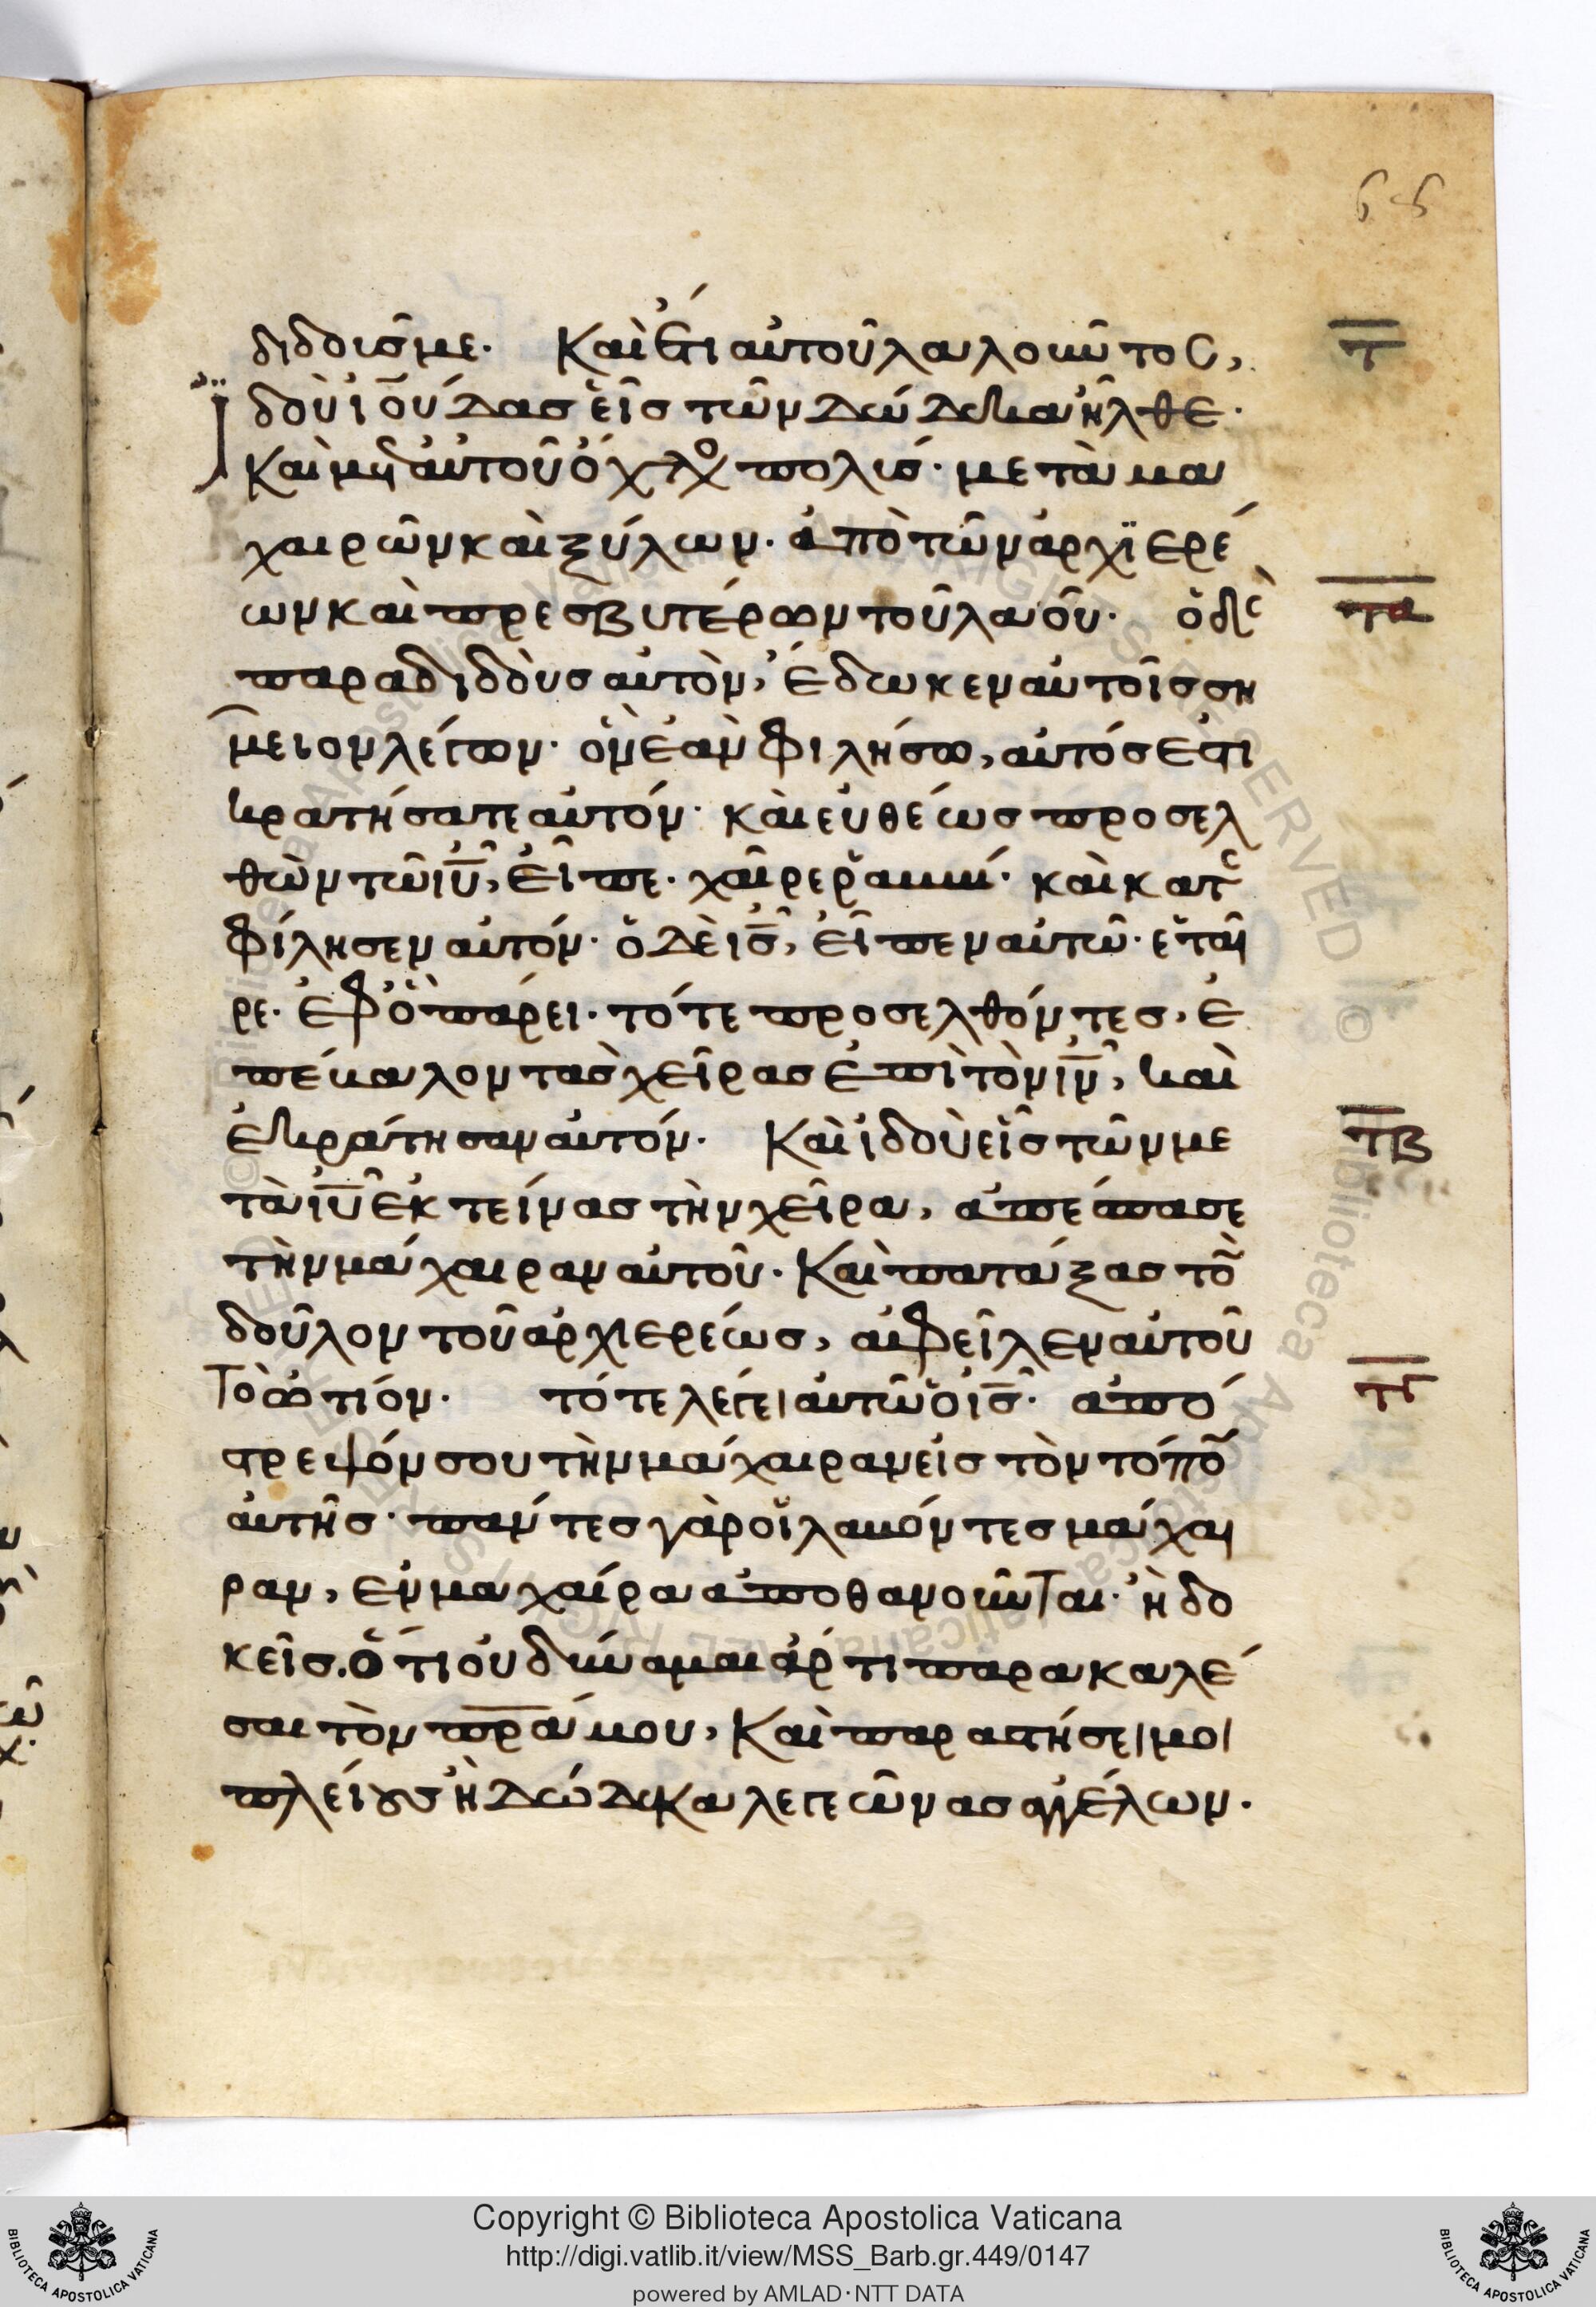 65
διδούς με. Καὶ ἔτι αὐτοῦ λαλοῦντος, τ
ἰδοὺ ἰούδας εἷς τῶν δώδεκα ἦλθε.
καὶ μετ αὐτοῦ ὄχλος πολύς. μετὰ μα
χαιρῶν καὶ ξύλων. ἀπὸ τῶν ἀρχϊερέ
ων καὶ πρεσβυτέρων τοῦ λαοῦ. ὁ δὲ τα
παραδιδοὺς αὐτὸν, ἔδωκεν αὐτοῖς ση
μεῖον λέγων. ὃν ἐὰν φιλήσω, αὐτός ἐστι
κρατήσατε αὐτόν. καὶ εὐθέως προσελ
θὼν τῶ ιυ, εἶπε. χαῖρε ῥαββί. καὶ κατε
φίλησεν αὐτόν. ὁ δὲ ις, εἶπεν αὐτῶ. ἑταῖ
ρε. ἐφ ὃ πάρει. τότε προσελθόντες, ἐ
πέβαλον τὰς χεῖρας ἐπὶ τὸν ιν, καὶ
ἐκράτησαν αὐτόν. Καὶ ἰδοὺ εἷς τῶν με τβ
τὰ ιυ ἐκτείνας τὴν χεῖρα, ἀπέσπασε
τὴν μάχαιραν αὐτοῦ. Καὶ πατάξας τὸ
δοῦλον τοῦ ἀρχιερέως, ἀφεῖλεν αὐτοῦ
τὸ ὠτίον. τότε λέγει αὐτῶ ὁ ις. ἀπό τγ
στρεψόν σου τὴν μάχαιραν εἰς τὸν τόπο
αὐτῆς. πάντες γὰρ οἱ λαβόντες μάχαι
ραν, ἐν μαχαίρα ἀποθανοῦνται. ἢ δο
κεῖς. ὅτι οὐ δύναμαι ἄρτι παρακαλέ
σαι τὸν πρα μου, Καὶ παραστήσει μοι
πλείους ἢ δώδεκα λεγεῶνας ἀγγέλων.
Copyright © Biblioteca Apostolica Vaticana
http://digi.vatlib.it/view/MSS_Barb.gr.449/0147
powered by AMLAD·NTT DATA
BIBLIOTECA APOSTOLICA VATICANA
BIBLIOTECA APOSTOLICA VATICANA